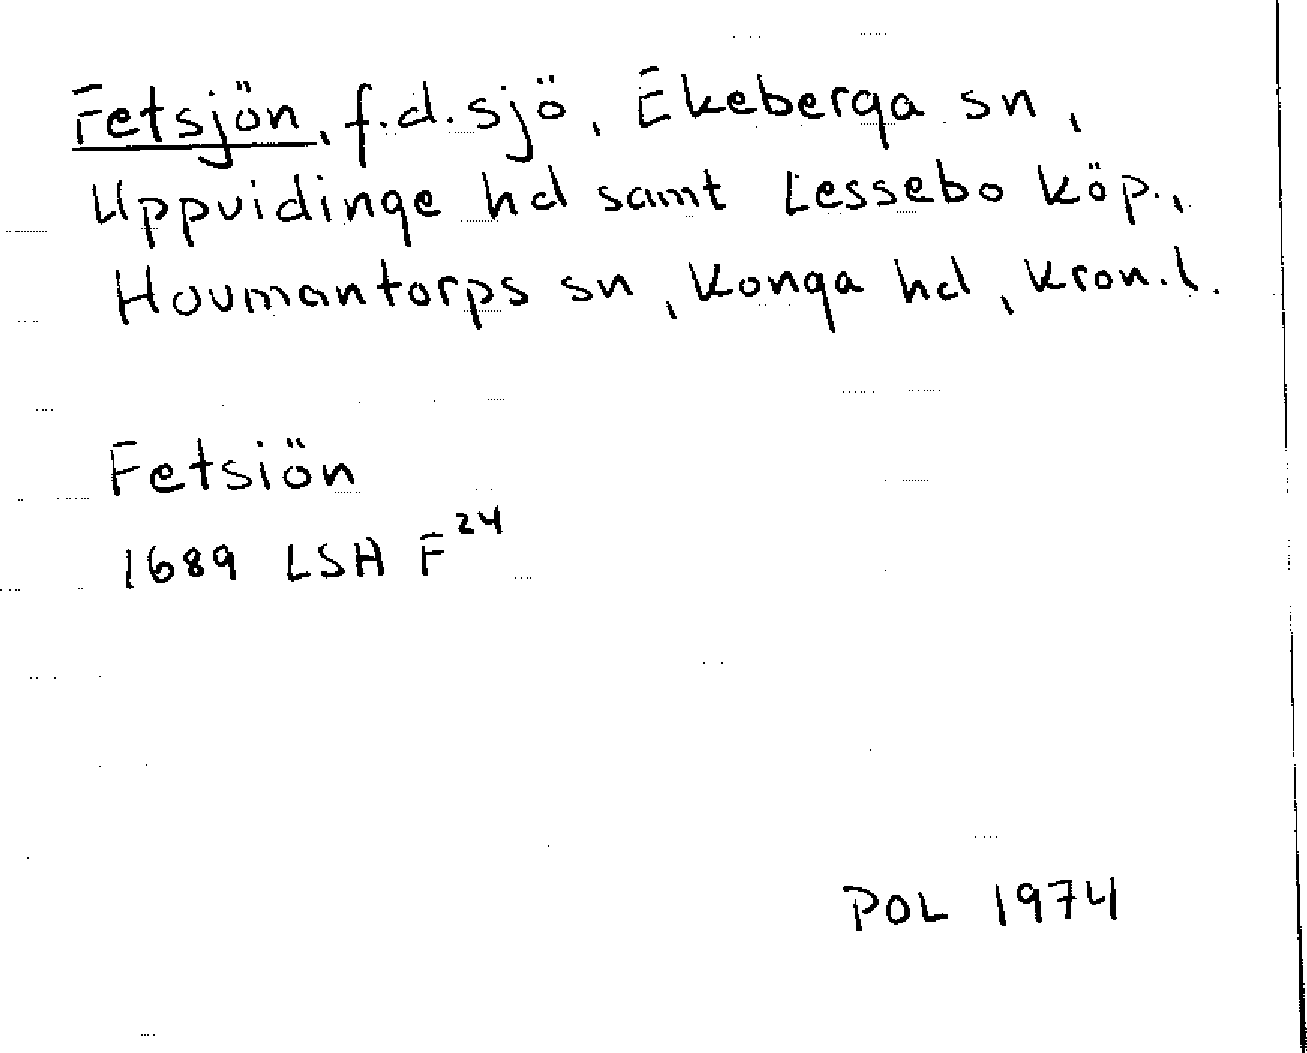 Fetsjön, f.d. sjö, Ekeberga sn,
Uppvidinge hd samt Lessebo köp.,
Hovmantorps sn, Konga hd, Kron.l.
Fetsiön
1689 LSH F²⁴
POL 1974